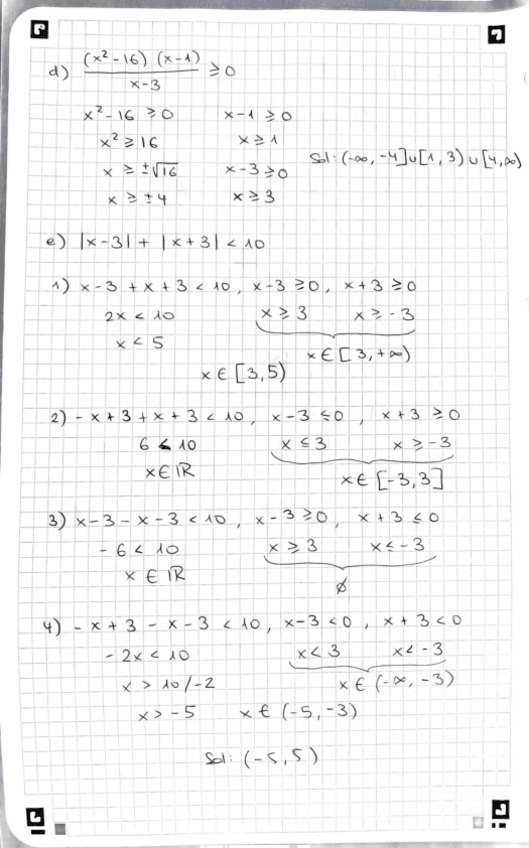 d) (x²-16) (x-1) / x-3 ≥ 0
x²-16 ≥ 0 x-1 ≥ 0
x² ≥ 16 x ≥ 1
x ≥ ±√16 x-3 ≥ 0 Sol: (-∞, -4]∪[1, 3)∪[4, ∞)
x ≥ ±4 x ≥ 3
e) |x-3| + |x+3| < 10
1) x-3 + x+3 < 10, x-3 ≥ 0, x+3 ≥ 0
2x < 10 x ≥ 3 x ≥ -3
x < 5 x ∈ [3, +∞)
x ∈ [3, 5)
2) -x+3 + x+3 < 10, x-3 ≤ 0, x+3 ≥ 0
6 < 10 x ≤ 3 x ≥ -3
x ∈ ℝ x ∈ [-3, 3]
3) x-3 - x-3 < 10, x-3 ≥ 0, x+3 ≤ 0
-6 < 10 x ≥ 3 x ≤ -3
x ∈ ℝ ∅
4) -x+3 - x-3 < 10, x-3 < 0, x+3 < 0
-2x < 10 x < 3 x < -3
x > 10/-2 x ∈ (-∞, -3)
x > -5 x ∈ (-5, -3)
Sol: (-5, 5)